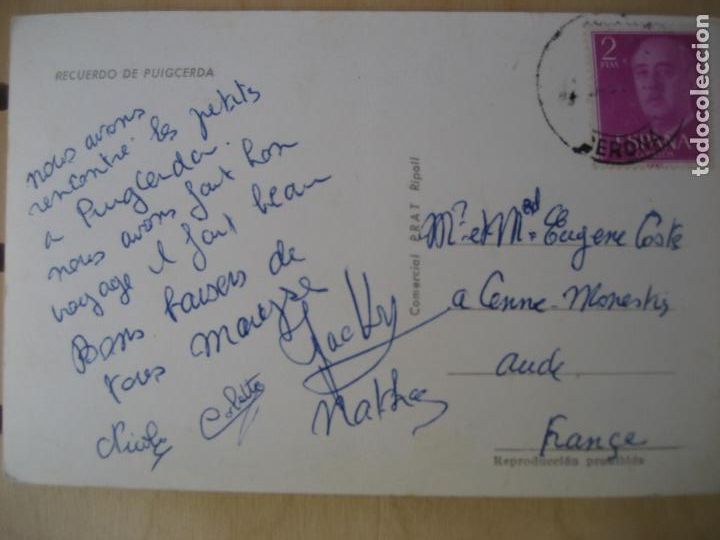 RECUERDO DE PUIGCERDA
nous avons
rencontré les petits
a Puigcerda.
nous avons fait bon
voyage il fait beau
Bons baisers de
tous Maryse
Jacky
Nicole Colette
Comercial PRAT Ripoll
2
PTAS
ESPAÑA
GERONA
Mr et Mme Eugene Coste
a Cenne-Monestiés
aude
France
Reproducción prohibida
todocoleccion